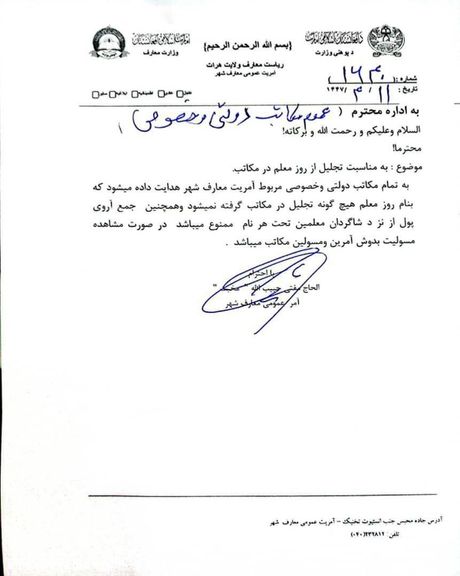 {بسم الله الرحمن الرحیم}
وزارت معارف
د پوهنې وزارت
ریاست معارف ولایت هرات
آمریت عمومی معارف شهر
شماره:( ۱۶۳۰
تاریخ: ۱۱ / ۳ /۱۴۴۷
به اداره محترم ( عموم مکاتب دولتی و خصوصی )
السلام وعلیکم و رحمت الله و برکاته!
محترما!
موضوع : به مناسبت تجلیل از روز معلم در مکاتب.
به تمام مکاتب دولتی وخصوصی مربوط آمریت معارف شهر هدایت داده میشود که
بنام روز معلم هیچ گونه تجلیل در مکاتب گرفته نمیشود وهمچنین جمع آروی
پول از نز د شاگردان معلمین تحت هر نام ممنوع میباشد در صورت مشاهده
مسولیت بدوش آمرین ومسولین مکاتب میباشد .
با احترام
الحاج مفتی حبیب الله
آمر عمومی معارف شهر
آدرس جاده محبس جنب انستیوت تخنیک – آمریت عمومی معارف شهر
تلفن ۲۳۲۸۱۲(۰۴۰)